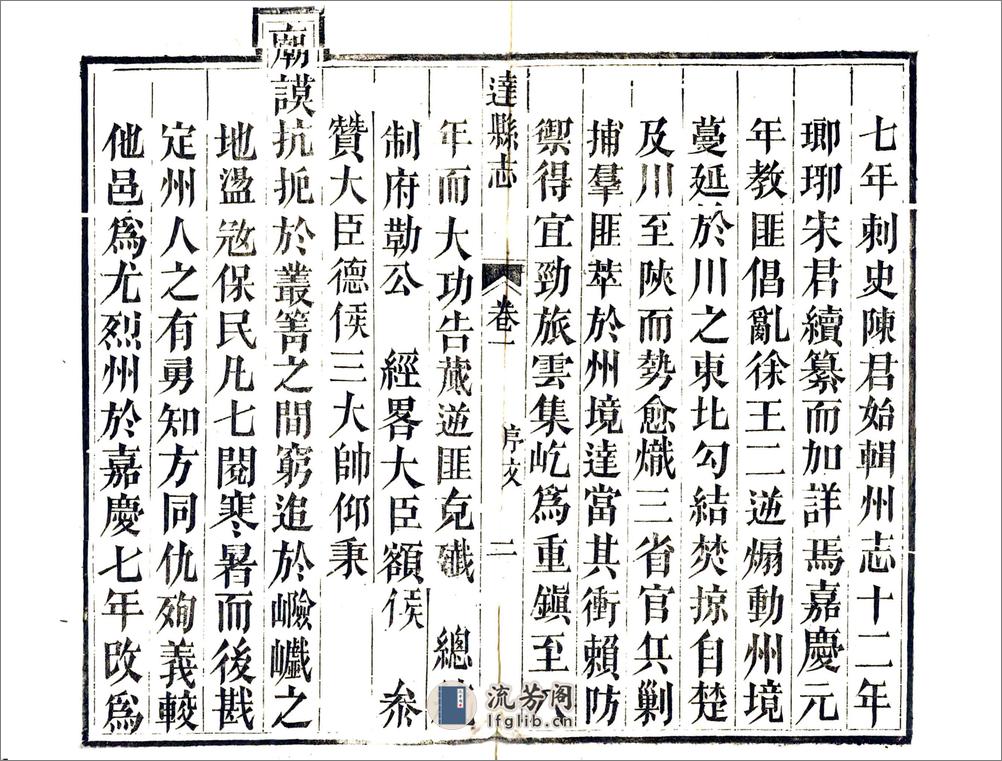 七年刺史陳君始輯州志十二年
瑯琊宋君續纂而加詳焉嘉慶元
年教匪倡亂徐王二逆煽動州境
蔓延於川之東北勾結焚掠自楚
及川至陝而勢愈熾三省官兵剿
捕羣匪萃於州境達當其衝賴防
禦得宜勁旅雲集屹爲重鎮至
達縣志 卷一 序文 二
年而大功告蕆逆匪克殲 總
制府勒公 經畧大臣額侯 參
贊大臣德侯三大帥仰秉
廟謨抗扼於叢箐之間窮追於嶮巇之
地盪寇保民凡七閱寒暑而後戡
定州人之有勇知方同仇殉義較
他邑爲尤烈州於嘉慶七年改爲
流芳阁
lfglib.cn